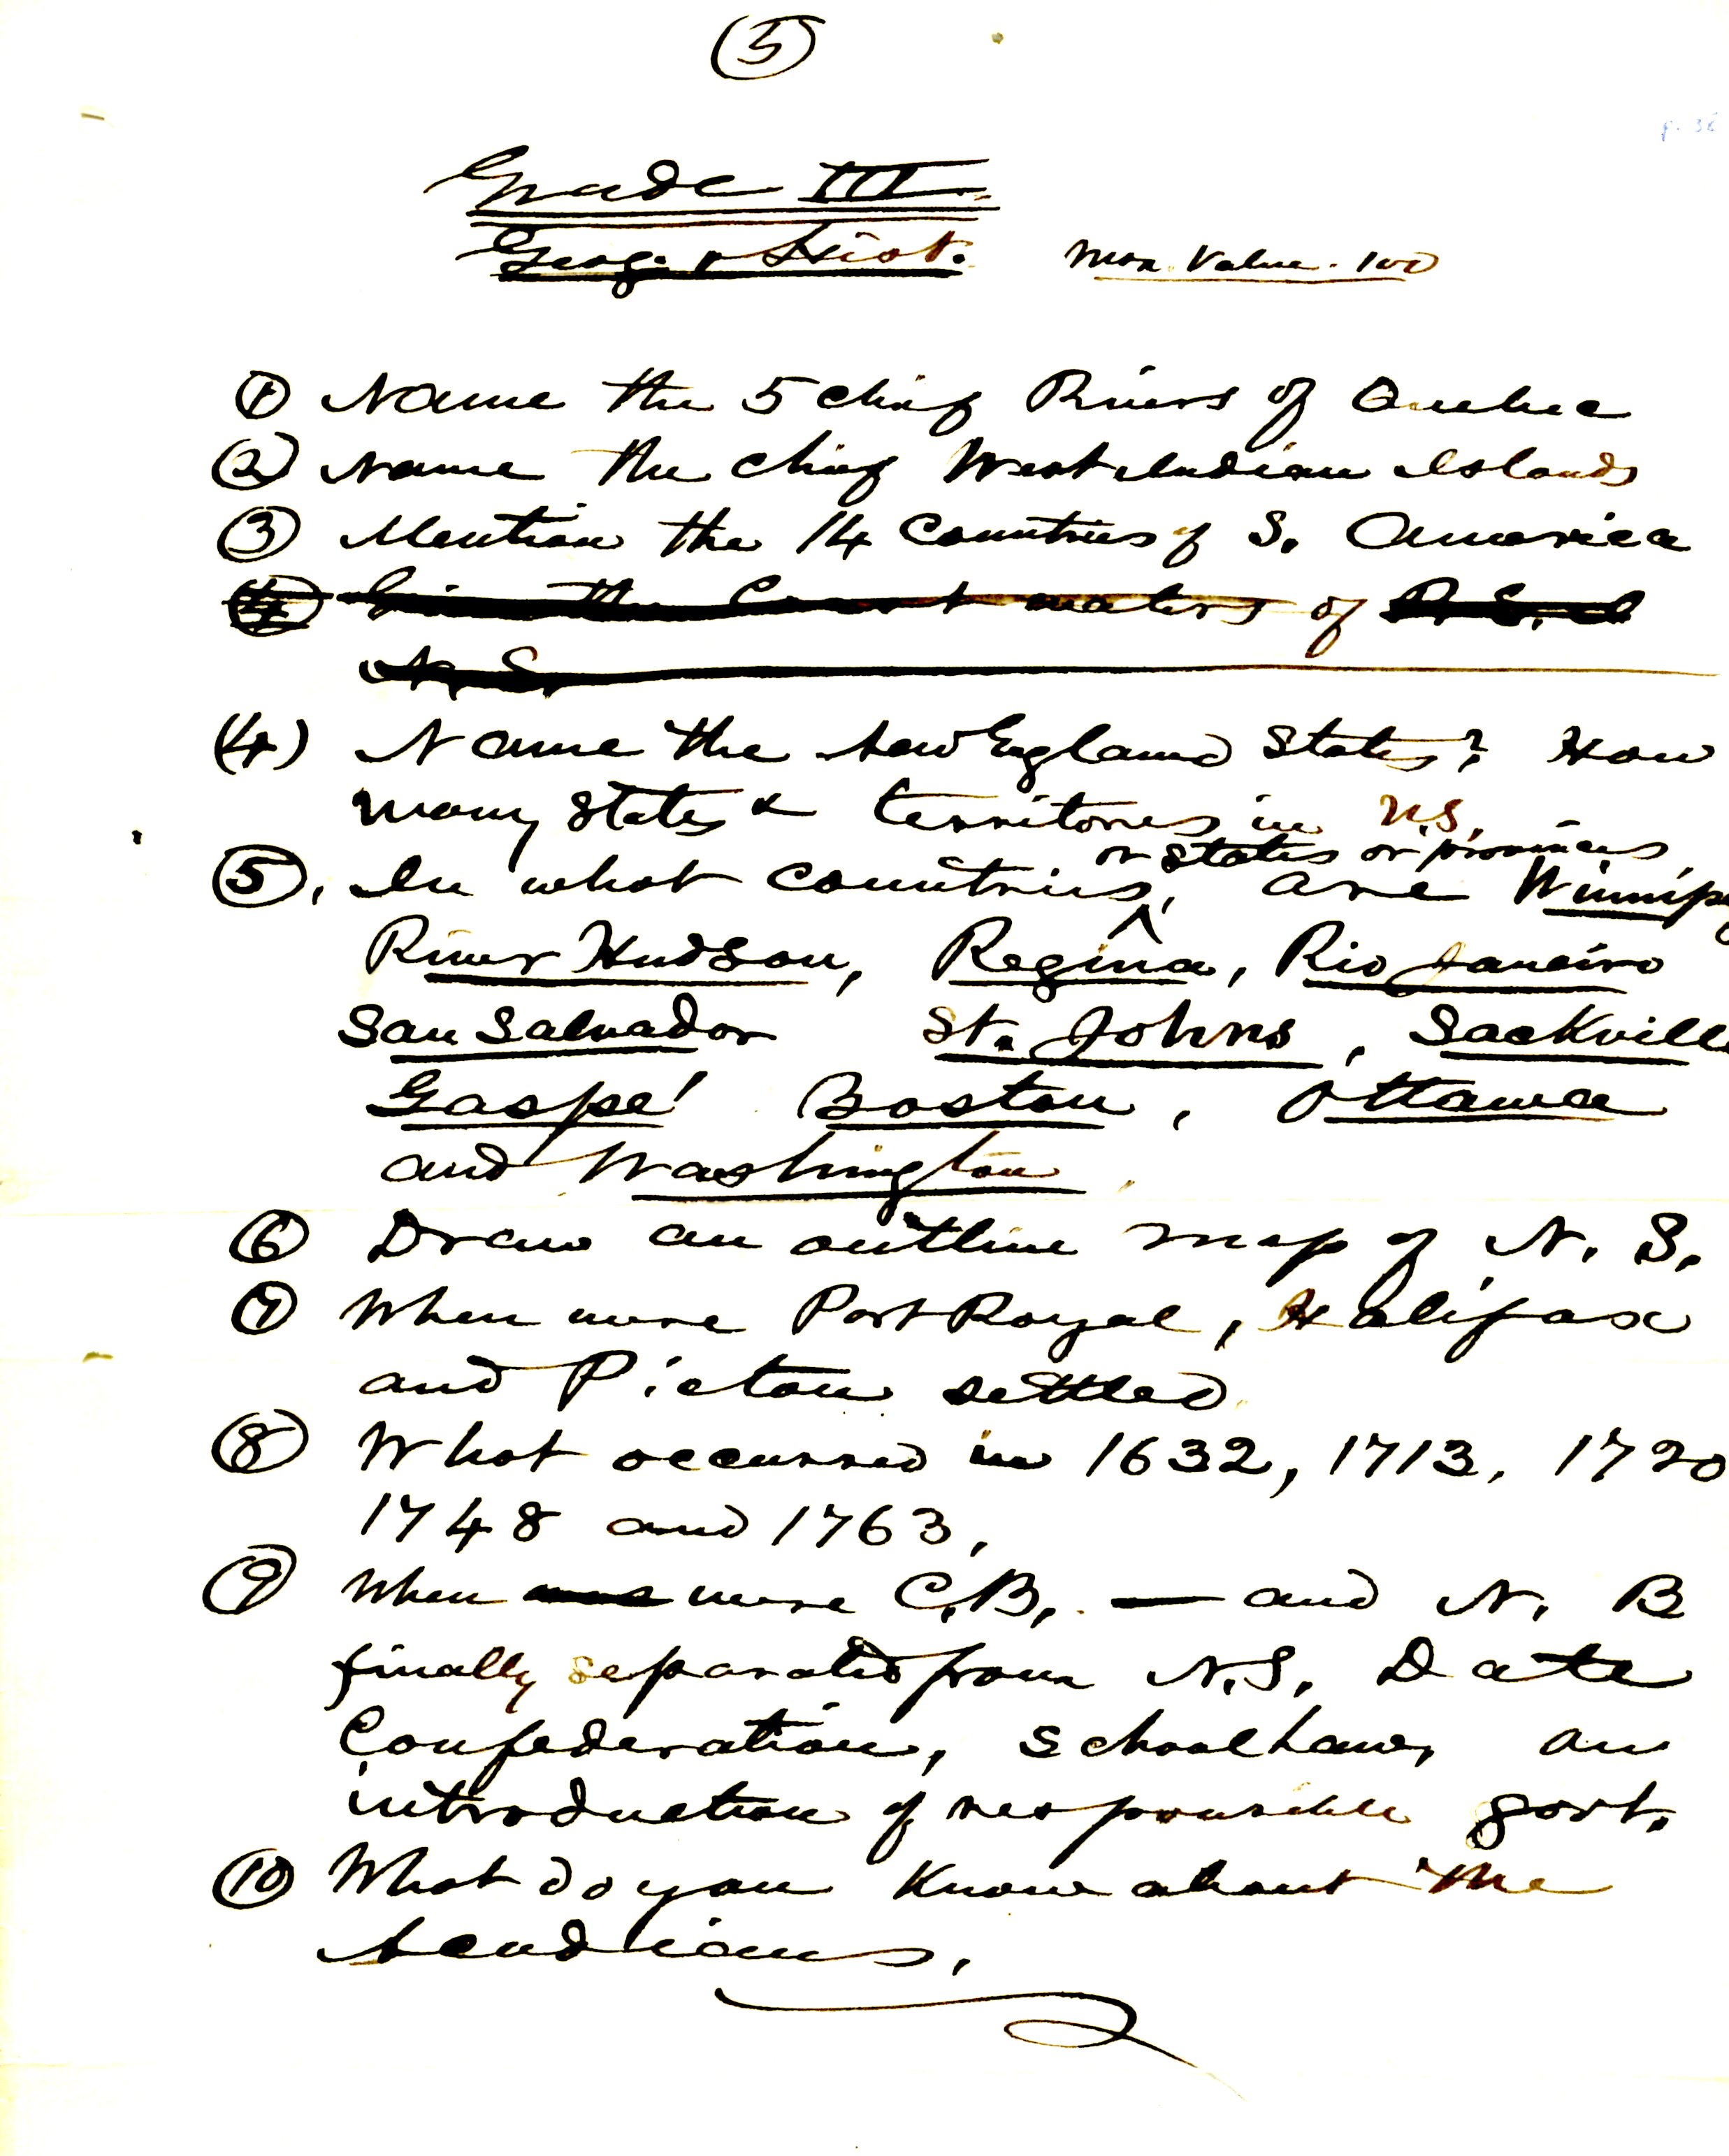 (5)
p. 38
Grade III.
Geog. & Hist. Max. Value. 100
(1) Name the 5 chief Rivers of Quebec
(2) Name the chief West Indian Islands
(3) Mention the 14 Countries of S. America
(4) Give the waters of
N. S.
(4) Name the New England States? How
many States & territories in U.S.
or States or provinces
(5). In what countries, are Winnipeg
River Hudson, Regina, Rio Janeiro
San Salvador St. Johns, Sackville
Gaspé Boston, Ottawa
and Washington
(6) Draw an outline map of N. S.
(7) When were Port Royal, Halifax
and Pictou settled
(8) What occurred in 1632, 1713, 1720
1748 and 1763.
(9) When were C.B. — and N. B
finally separated from N.S. Date
Confederation, School Law, an
introduction of responsible govt.
(10) What do you know about the
Acadians.